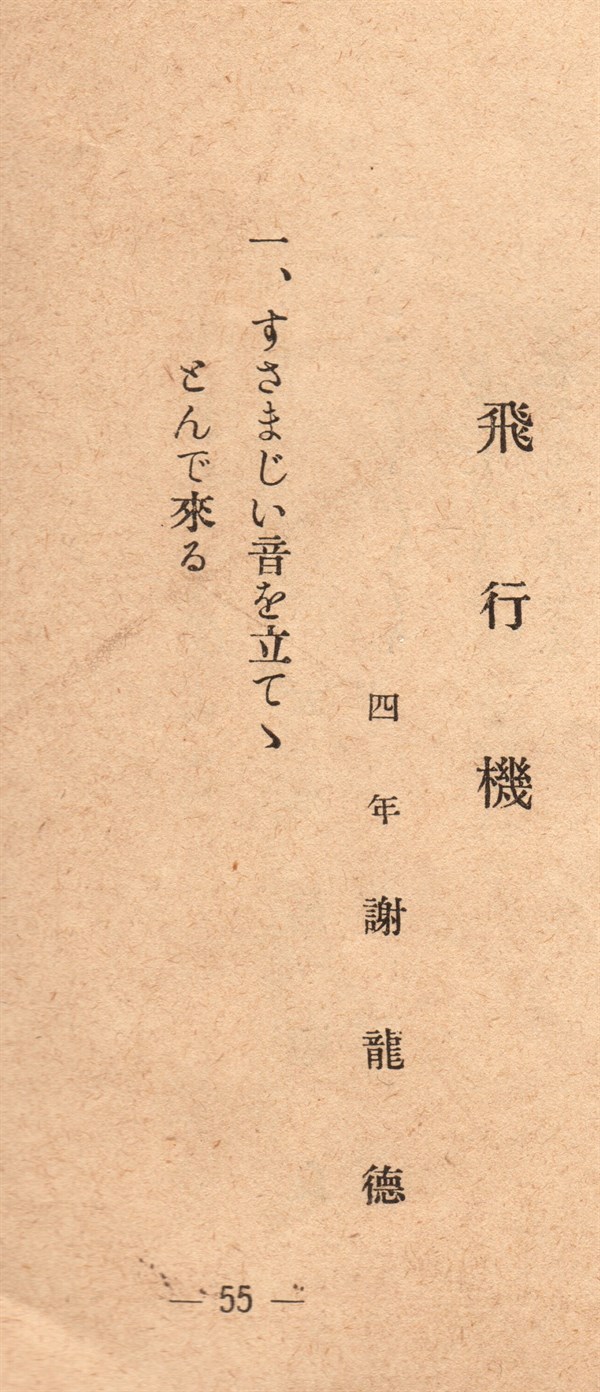 飛行機
四年 謝龍德
一、すさまじい音を立てゝ
とんで來る
— 55 —